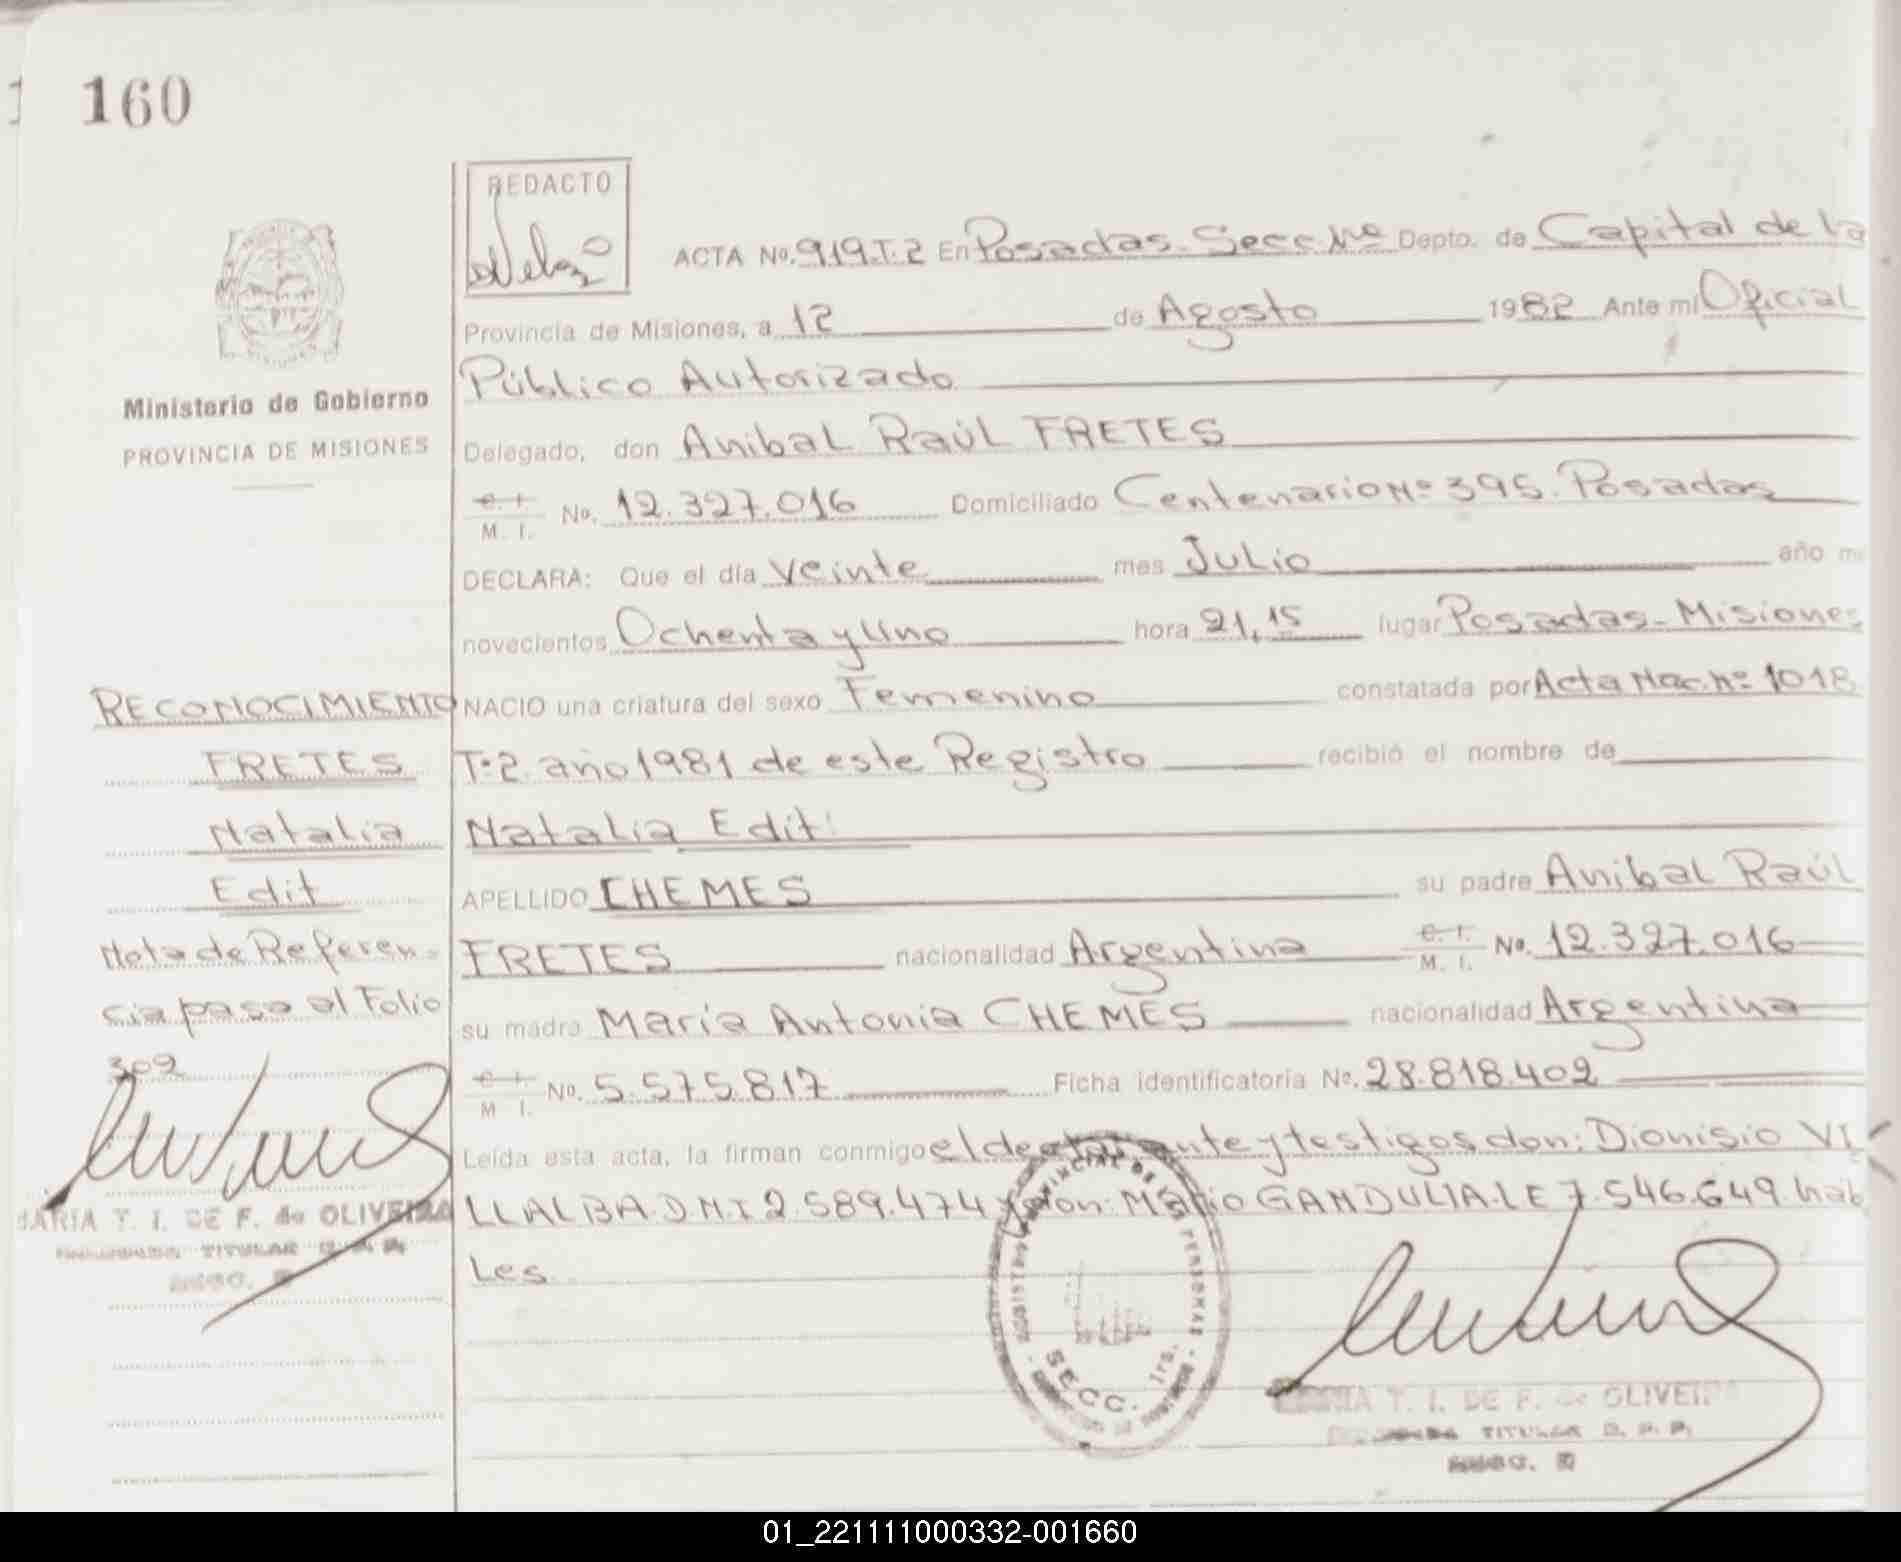 160
REDACTO
ACTA No. 919.T.2 En Posadas. Secc. Nº Depto. de Capital de la
Provincia de Misiones, a 12 de Agosto 1982 Ante mi Oficial
Público Autorizado
Ministerio de Gobierno
PROVINCIA DE MISIONES
Delegado, don Anibal Raúl FRETES
C. I.
M. I. No. 12.327.016 Domiciliado Centenario Nº 395. Posadas
DECLARA: Que el día Veinte mes Julio año mi
novecientos Ochenta y Uno hora 21,15 lugar Posadas - Misiones
RECONOCIMIENTO
NACIO una criatura del sexo Femenino constatada por Acta Nac. Nº 1018
FRETES
Tº 2 año 1981 de este Registro recibió el nombre de
Natalia
Natalia Edit
Edit
APELLIDO CHEMES su padre Anibal Raúl
Nota de Referen-
FRETES nacionalidad Argentina C. I. M. I. No. 12.327.016
cia pasa al Folio
su madre María Antonia CHEMES nacionalidad Argentina
309
C. I. M I. No. 5.575.817 Ficha identificatoria Nº. 28.818.402
Leída esta acta, la firman conmigo el declarante y testigos don: Dionisio VI
LLALBA D N I 2.589.474 y don: Mario GANDULIA L E 7.546.649. hab
les
MARIA T. I. DE F. de OLIVEIRA
TITULAR
SECC. 1ra.
MARIA T. I. DE F. de OLIVEIRA
TITULAR
01_221111000332-001660